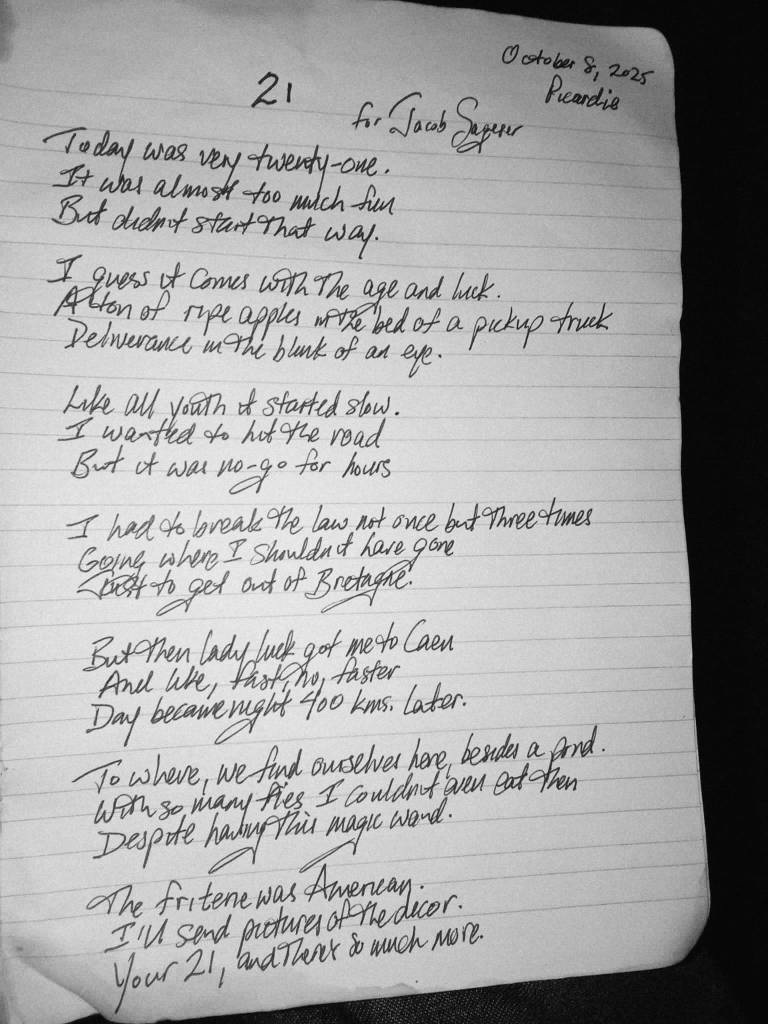 October 8, 2025
Picardie
21
for Jacob Sageser
Today was very twenty-one.
It was almost too much fun
But didn't start that way.
I guess it comes with the age and luck.
A ton of ripe apples in the bed of a pickup truck
Deliverance in the blink of an eye.
Like all youth it started slow.
I wanted to hit the road
But it was no-go for hours
I had to break the law not once but three times
Going where I shouldn't have gone
Just to get out of Bretagne.
But then lady luck got me to Caen
And like, fast, no, faster
Day became night 400 kms. later.
To where, we find ourselves here, besides a pond.
With so many I couldn't even eat then
Despite having this magic wand.
The friterie was American.
I'll send pictures of the decor.
Your 21, and there's so much more.